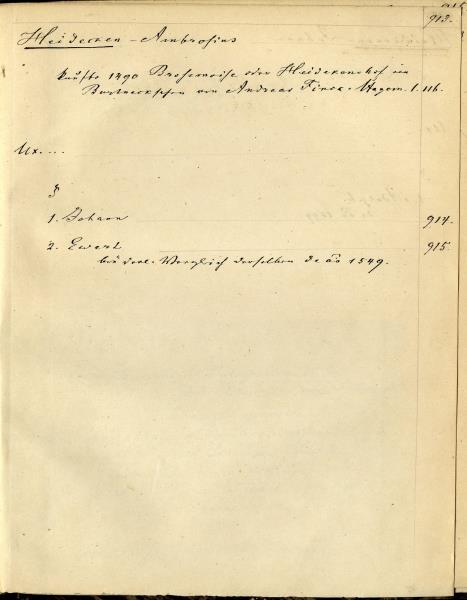 913.
Heidecken - Ambrosius
kaufte 1490 Brosemoise oder Heidekenshof im
Burtneckschen von Andreas Finck. Hagem. I. 116.
Ux. ...
1. Johann 914.
2. Ewert 915.
brüderl. Vergleich derselben de ao 1549.